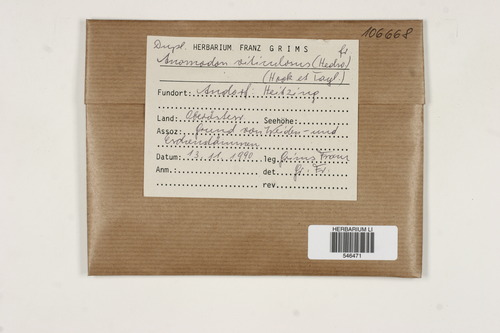 106668
Dupl. HERBARIUM FRANZ GRIMS fr
Anomodon viticulosus (Hedw.)
(Hook et Tayl.)
Fundort: Andorf: Heitzing
Land: Oberösterr. Seehöhe:
Assoz: Grund von Weiden- und
Eschenstämmen
Datum: 13. 11. 1990 leg. Grims Franz
Anm.: det. Gr. Fr.
rev.
HERBARIUM LI
546471